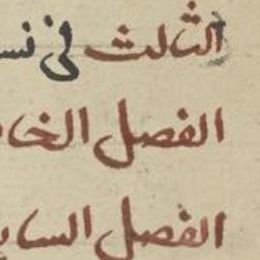 الثالث في نس
الفصل الخا
الفصل السا